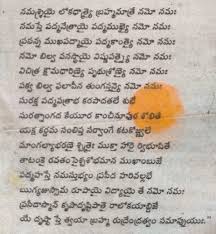 నమశ్శ్రియై లోకధాత్ర్యై బ్రహ్మమాత్రే నమో నమః
నమస్తే పద్మనేత్రాయై పద్మముఖ్యై నమో నమః
ప్రసన్న ముఖపద్మాయై పద్మకాంత్యై నమో నమః
నమో బిల్వ వనస్థాయై విష్ణుపత్న్యై నమో నమః
విచిత్ర క్షౌమధారిణ్యై పృథుశ్రోణ్యై నమో నమః
పక్వ బిల్వ ఫలాపీన తుంగస్తన్యై నమో నమః
సురక్త పద్మపత్రాభ కరపాదతలే శుభే
సురత్నాంగద కేయూర కాంచీనూపుర శోభితే
యక్ష కర్దమ సంలిప్త సర్వాంగే కటకోజ్జ్వలే
మాంగళ్యాభరణై శ్చిత్రైః ముక్తా హారై ర్విభూషితే
తాటంకై రవతంసైశ్చ శోభమాన ముఖాంబుజే
పద్మహస్తే నమస్తుభ్యం ప్రసీద హరివల్లభే
ఋగ్యజుస్సామ రూపాయై విద్యాయై తే నమో నమః
ప్రసీదాస్మాన్ కృపాదృష్టిపాతై రాలోకయాబ్ధిజే
యే దృష్టా స్తే త్వయా బ్రహ్మ రుద్రేంద్రత్వం సమాప్నుయుః